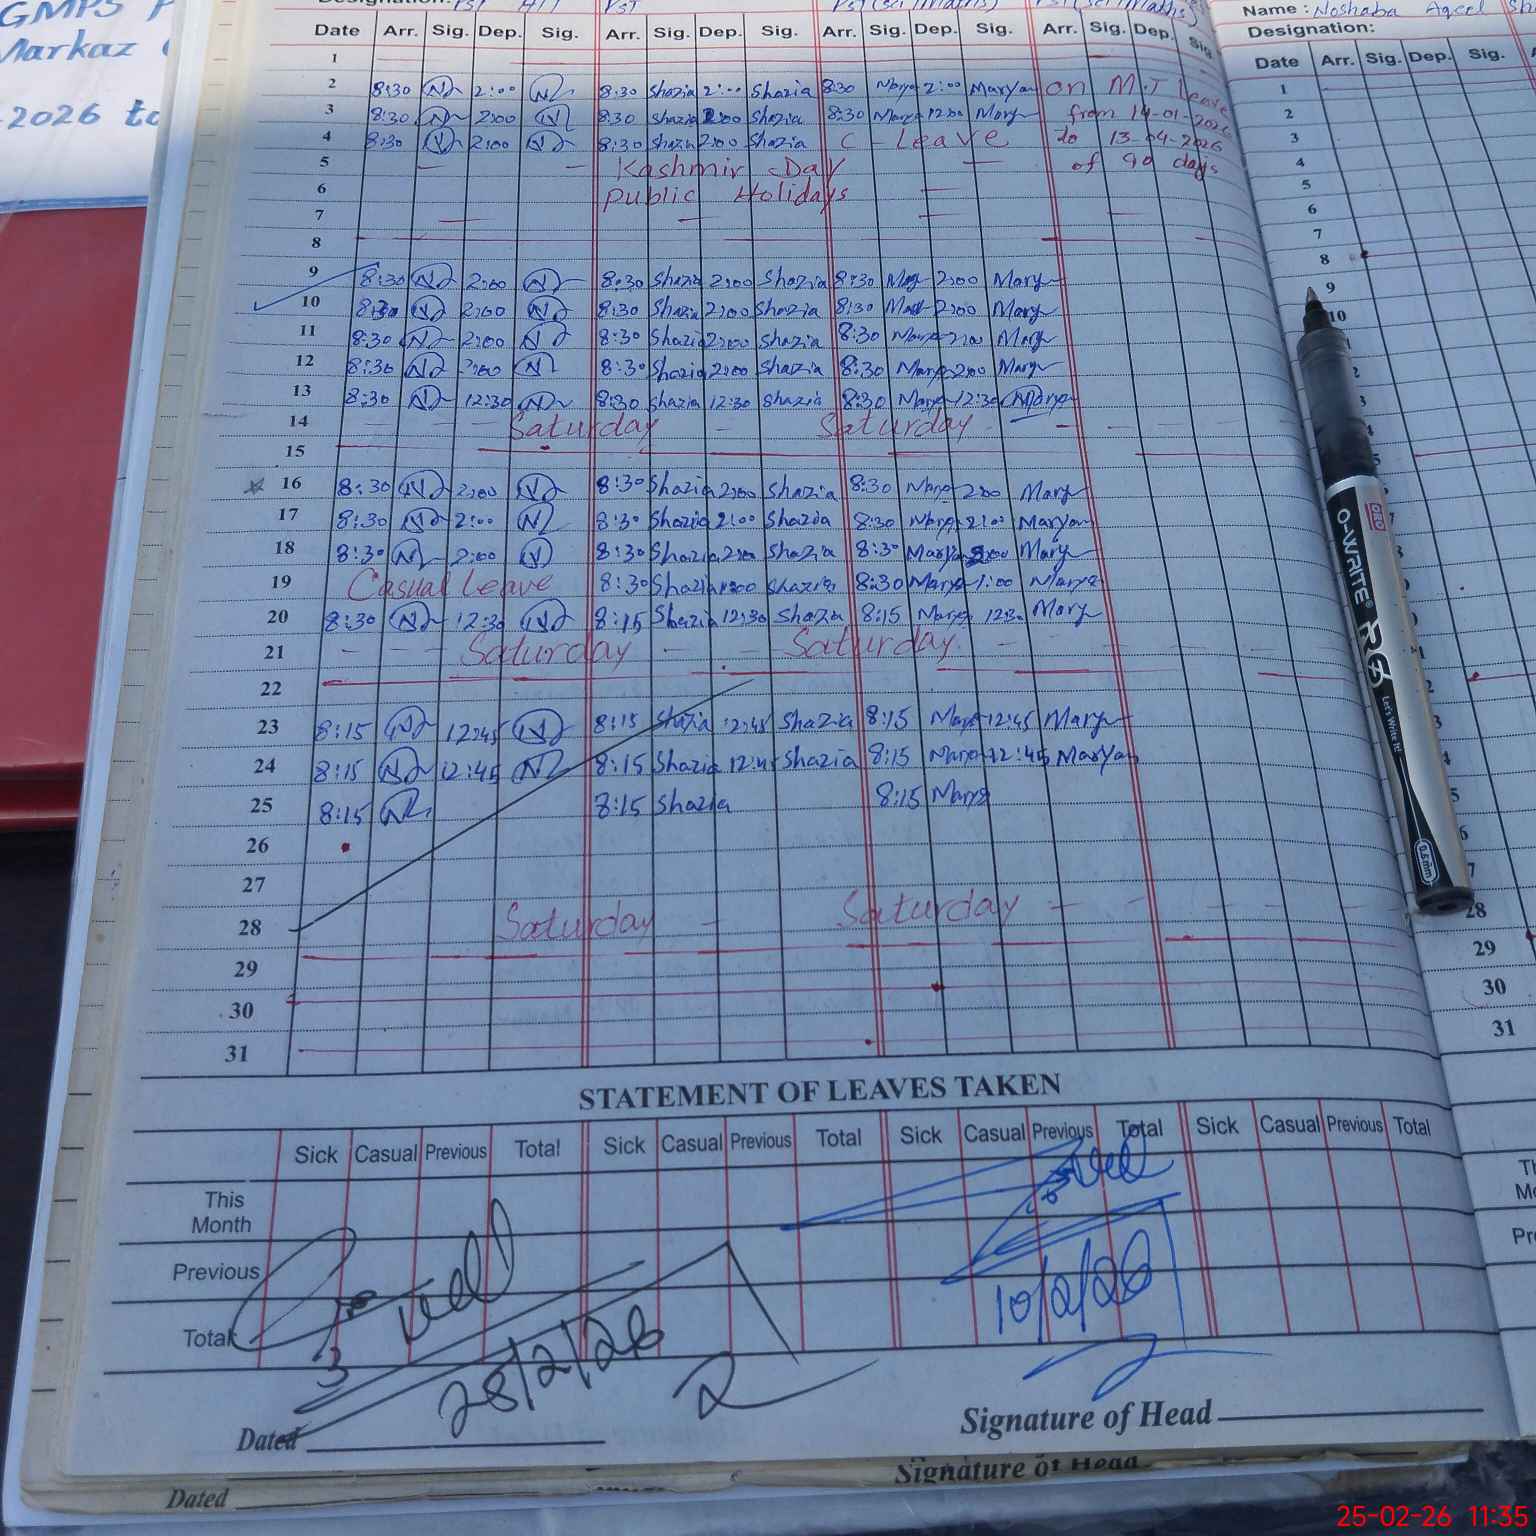 GMPS
Markaz
-2026 to
Designation: PST
PST
PST (Sci/Maths)
PST (Sci/Maths)
Name : Noshaba Aqeel
Designation:
Date Arr. Sig. Dep. Sig. Arr. Sig. Dep. Sig. Arr. Sig. Dep. Sig. Arr. Sig. Dep. Sig.
Date Arr. Sig. Dep. Sig.
1
2 8:30 2:00 8:30 Shazia 2:00 Shazia 8:30 2:00 Maryam on M.T Leave
3 8:30 2:00 8:30 Shazia 2:00 Shazia 8:30 12:00 from 14-01-2026
4 8:30 2:00 8:30 Shazia 2:00 Shazia C-Leave to 13-04-2026
5 Kashmir Day of 90 days
6 Public Holidays
7
8
9 8:30 2:00 8:30 Shazia 2:00 Shazia 8:30 2:00 Mary
10 8:30 2:00 8:30 Shazia 2:00 Shazia 8:30 2:00 Mary
11 8:30 2:00 8:30 Shazia 2:00 Shazia 8:30 2:00 Mary
12 8:30 2:00 8:30 Shazia 2:00 Shazia 8:30 2:00 Mary
13 8:30 12:30 8:30 Shazia 12:30 Shazia 8:30 12:30
14 Saturday Saturday
15
16 8:30 2:00 8:30 Shazia 2:00 Shazia 8:30 2:00 Mary
17 8:30 2:00 8:30 Shazia 2:00 Shazia 8:30 2:00 Maryam
18 8:30 2:00 8:30 Shazia 2:00 Shazia 8:30 2:00 Mary
19 Casual Leave 8:30 Shazia 1:00 Shazia 8:30 1:00
20 8:30 12:30 8:15 Shazia 12:30 Shazia 8:15 12:30 Mary
21 Saturday Saturday
22
23 8:15 12:45 8:15 Shazia 12:45 Shazia 8:15 12:45 Mary
24 8:15 12:45 8:15 Shazia 12:45 Shazia 8:15 12:45 Maryam
25 8:15 8:15 Shazia 8:15
26
27
28 Saturday Saturday
29
30
31
1
2
3
4
5
6
7
8
9
10
28
29
30
31
O-WRITE
Let's Write It!
STATEMENT OF LEAVES TAKEN
Sick Casual Previous Total Sick Casual Previous Total Sick Casual Previous Total Sick Casual Previous Total
This Month
Previous
Total
28/2/26
10/2/26
Dated
Signature of Head
Dated
Signature of Head
25-02-26 11:35